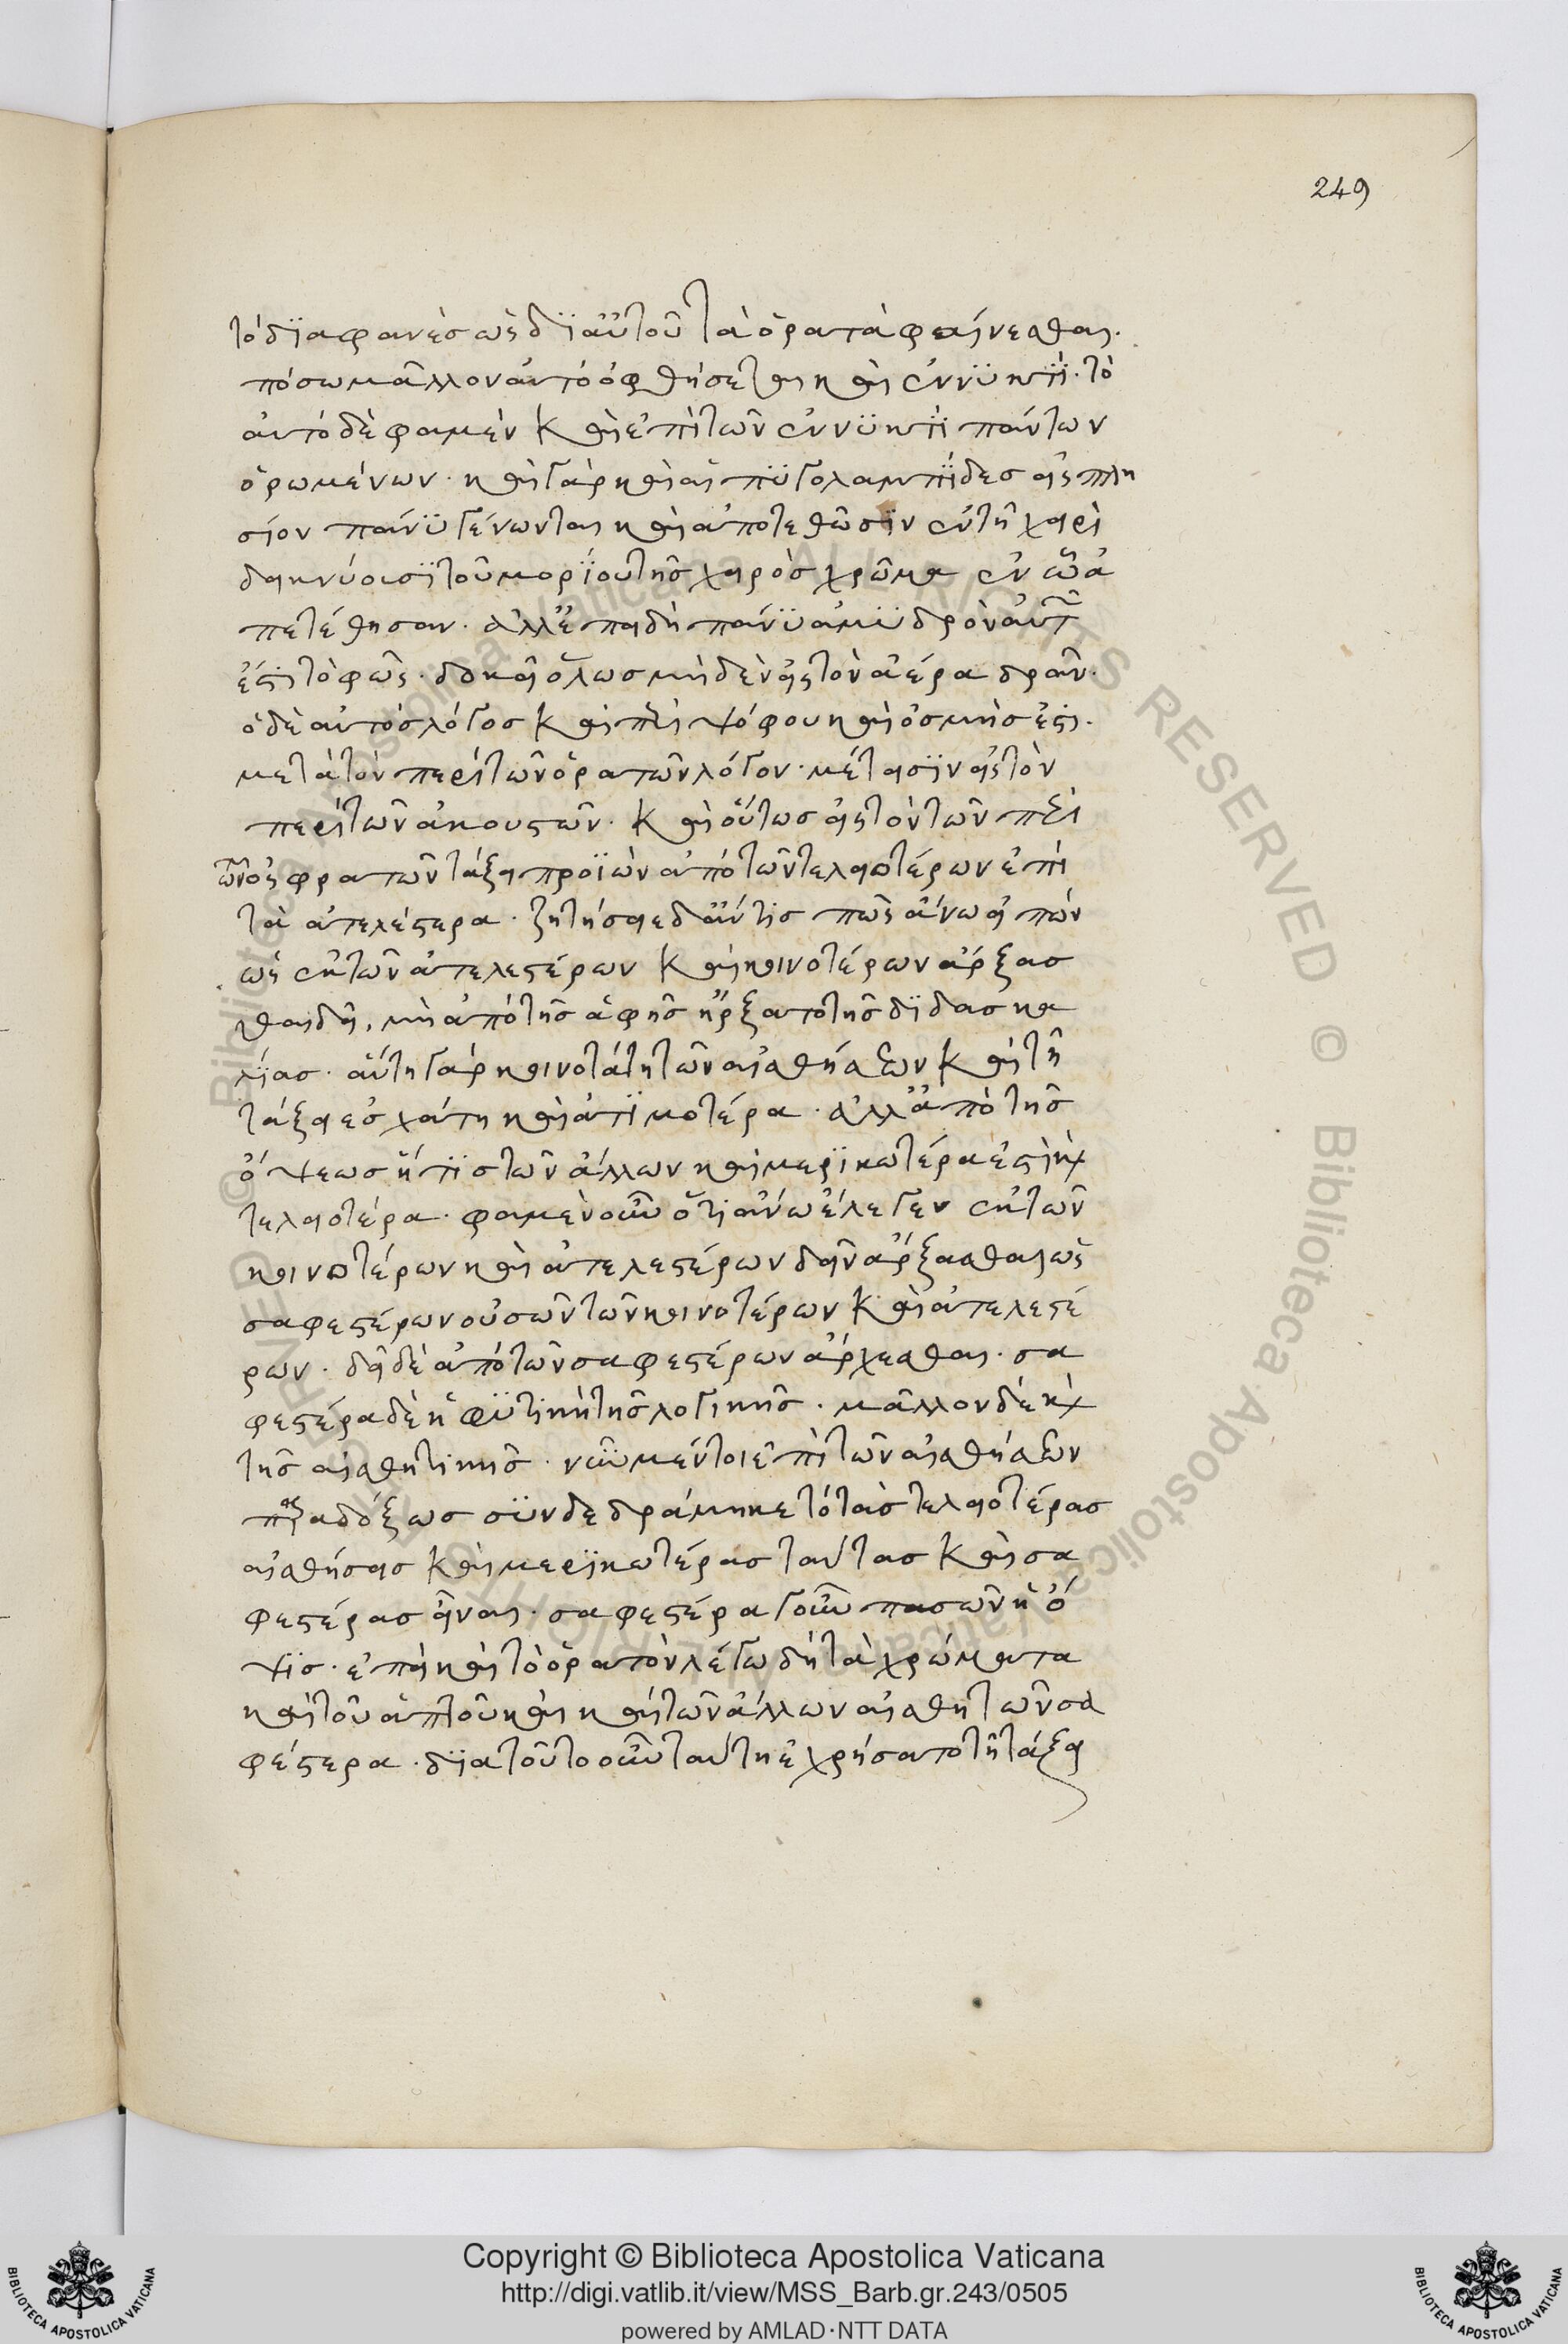 249
τὸ διαφανὲς ὡς δι αὐτοῦ τὰ ὁρατὰ φαίνεσθαι.
πόσω μᾶλλον αὐτὸ ὀφθήσεται καὶ ἐν νυκτί. τὸ
αὐτὸ δὲ φαμὲν καὶ ἐπὶ τῶν ἐν νυκτὶ πάντων
ὁρωμένων. καὶ γὰρ καὶ αἱ πυγολαμπίδες εἰς πλη
σίον πάνυ γένωνται καὶ ἀποτεθῶσιν ἐν τῇ χειρὶ
δεικνύουσι τοῦ μορίου τῆς χειρὸς χρῶμα ἐν ὧ ἀ
πετέθησαν. ἀλλ ἐπειδὴ πάνυ ἀμυδρὸν αὐτῶν
ἐστὶ τὸ φῶς. δοκεῖ ὅλως μηδὲν εἰς τὸν ἀέρα δρᾶν.
ὁ δὲ αὐτὸς λόγος καὶ περὶ ψόφου καὶ ὀσμῆς ἐστι.
μετὰ τὸν περὶ τῶν ὁρατῶν λόγον. μέτεισιν εἰς τὸν
περὶ τῶν ἀκουστῶν. καὶ οὕτως εἰς τὸν τῶν περὶ
τῶν ὀσφραντῶν τάξει προϊὼν ἀπὸ τῶν τελειοτέρων ἐπὶ
τὰ ἀτελέστερα. ζητήσειε δ ἄν τις πῶς ἄνω εἰπὼν
ὡς ἐκ τῶν ἀτελεστέρων καὶ κοινοτέρων ἄρξασ
θαι δεῖ, μὴ ἀπὸ τῆς ἁφῆς ἤρξατο τῆς διδασκα
λίας. αὕτη γὰρ κοινοτάτη τῶν αἰσθήσεων καὶ τῇ
τάξει ἐσχάτη καὶ ἀτιμοτέρα. ἀλλ ἀπὸ τῆς
ὄψεως ἥτις τῶν ἄλλων καὶ μερικωτέρα ἐστὶ καὶ
τελειοτέρα. φαμὲν οὖν ὅτι ἄνω ἔλεγεν ἐκ τῶν
κοινοτέρων καὶ ἀτελεστέρων δεῖν ἄρξασθαι ὡς
σαφεστέρων οὐσῶν τῶν κοινοτέρων καὶ ἀτελεστέ
ρων. δεῖ δὲ ἀπὸ τῶν σαφεστέρων ἄρχεσθαι. σα
φεστέρα δὲ ἡ φυτικὴ τῆς λογικῆς. μᾶλλον δὲ καὶ
τῆς αἰσθητικῆς. νῦν μέντοι ἐπὶ τῶν αἰσθήσεων
παραδόξως συνδεδράμηκε τὸ τὰς τελειοτέρας
αἰσθήσεις καὶ μερικωτέρας ταύτας καὶ σα
φεστέρας εἶναι. σαφεστέρα γοῦν πασῶν ἡ ὄ
ψις. ἐπεὶ καὶ τὸ ὁρατὸν λέγω δὴ τὰ χρώματα
καὶ τοῦ ἁπτοῦ καὶ καὶ τῶν ἄλλων αἰσθητῶν σα
φέστερα. διὰ τοῦτο οὖν ταύτη ἐχρήσατο τῇ τάξει
Copyright © Biblioteca Apostolica Vaticana
http://digi.vatlib.it/view/MSS_Barb.gr.243/0505
powered by AMLAD·NTT DATA
BIBLIOTECA APOSTOLICA VATICANA
BIBLIOTECA APOSTOLICA VATICANA